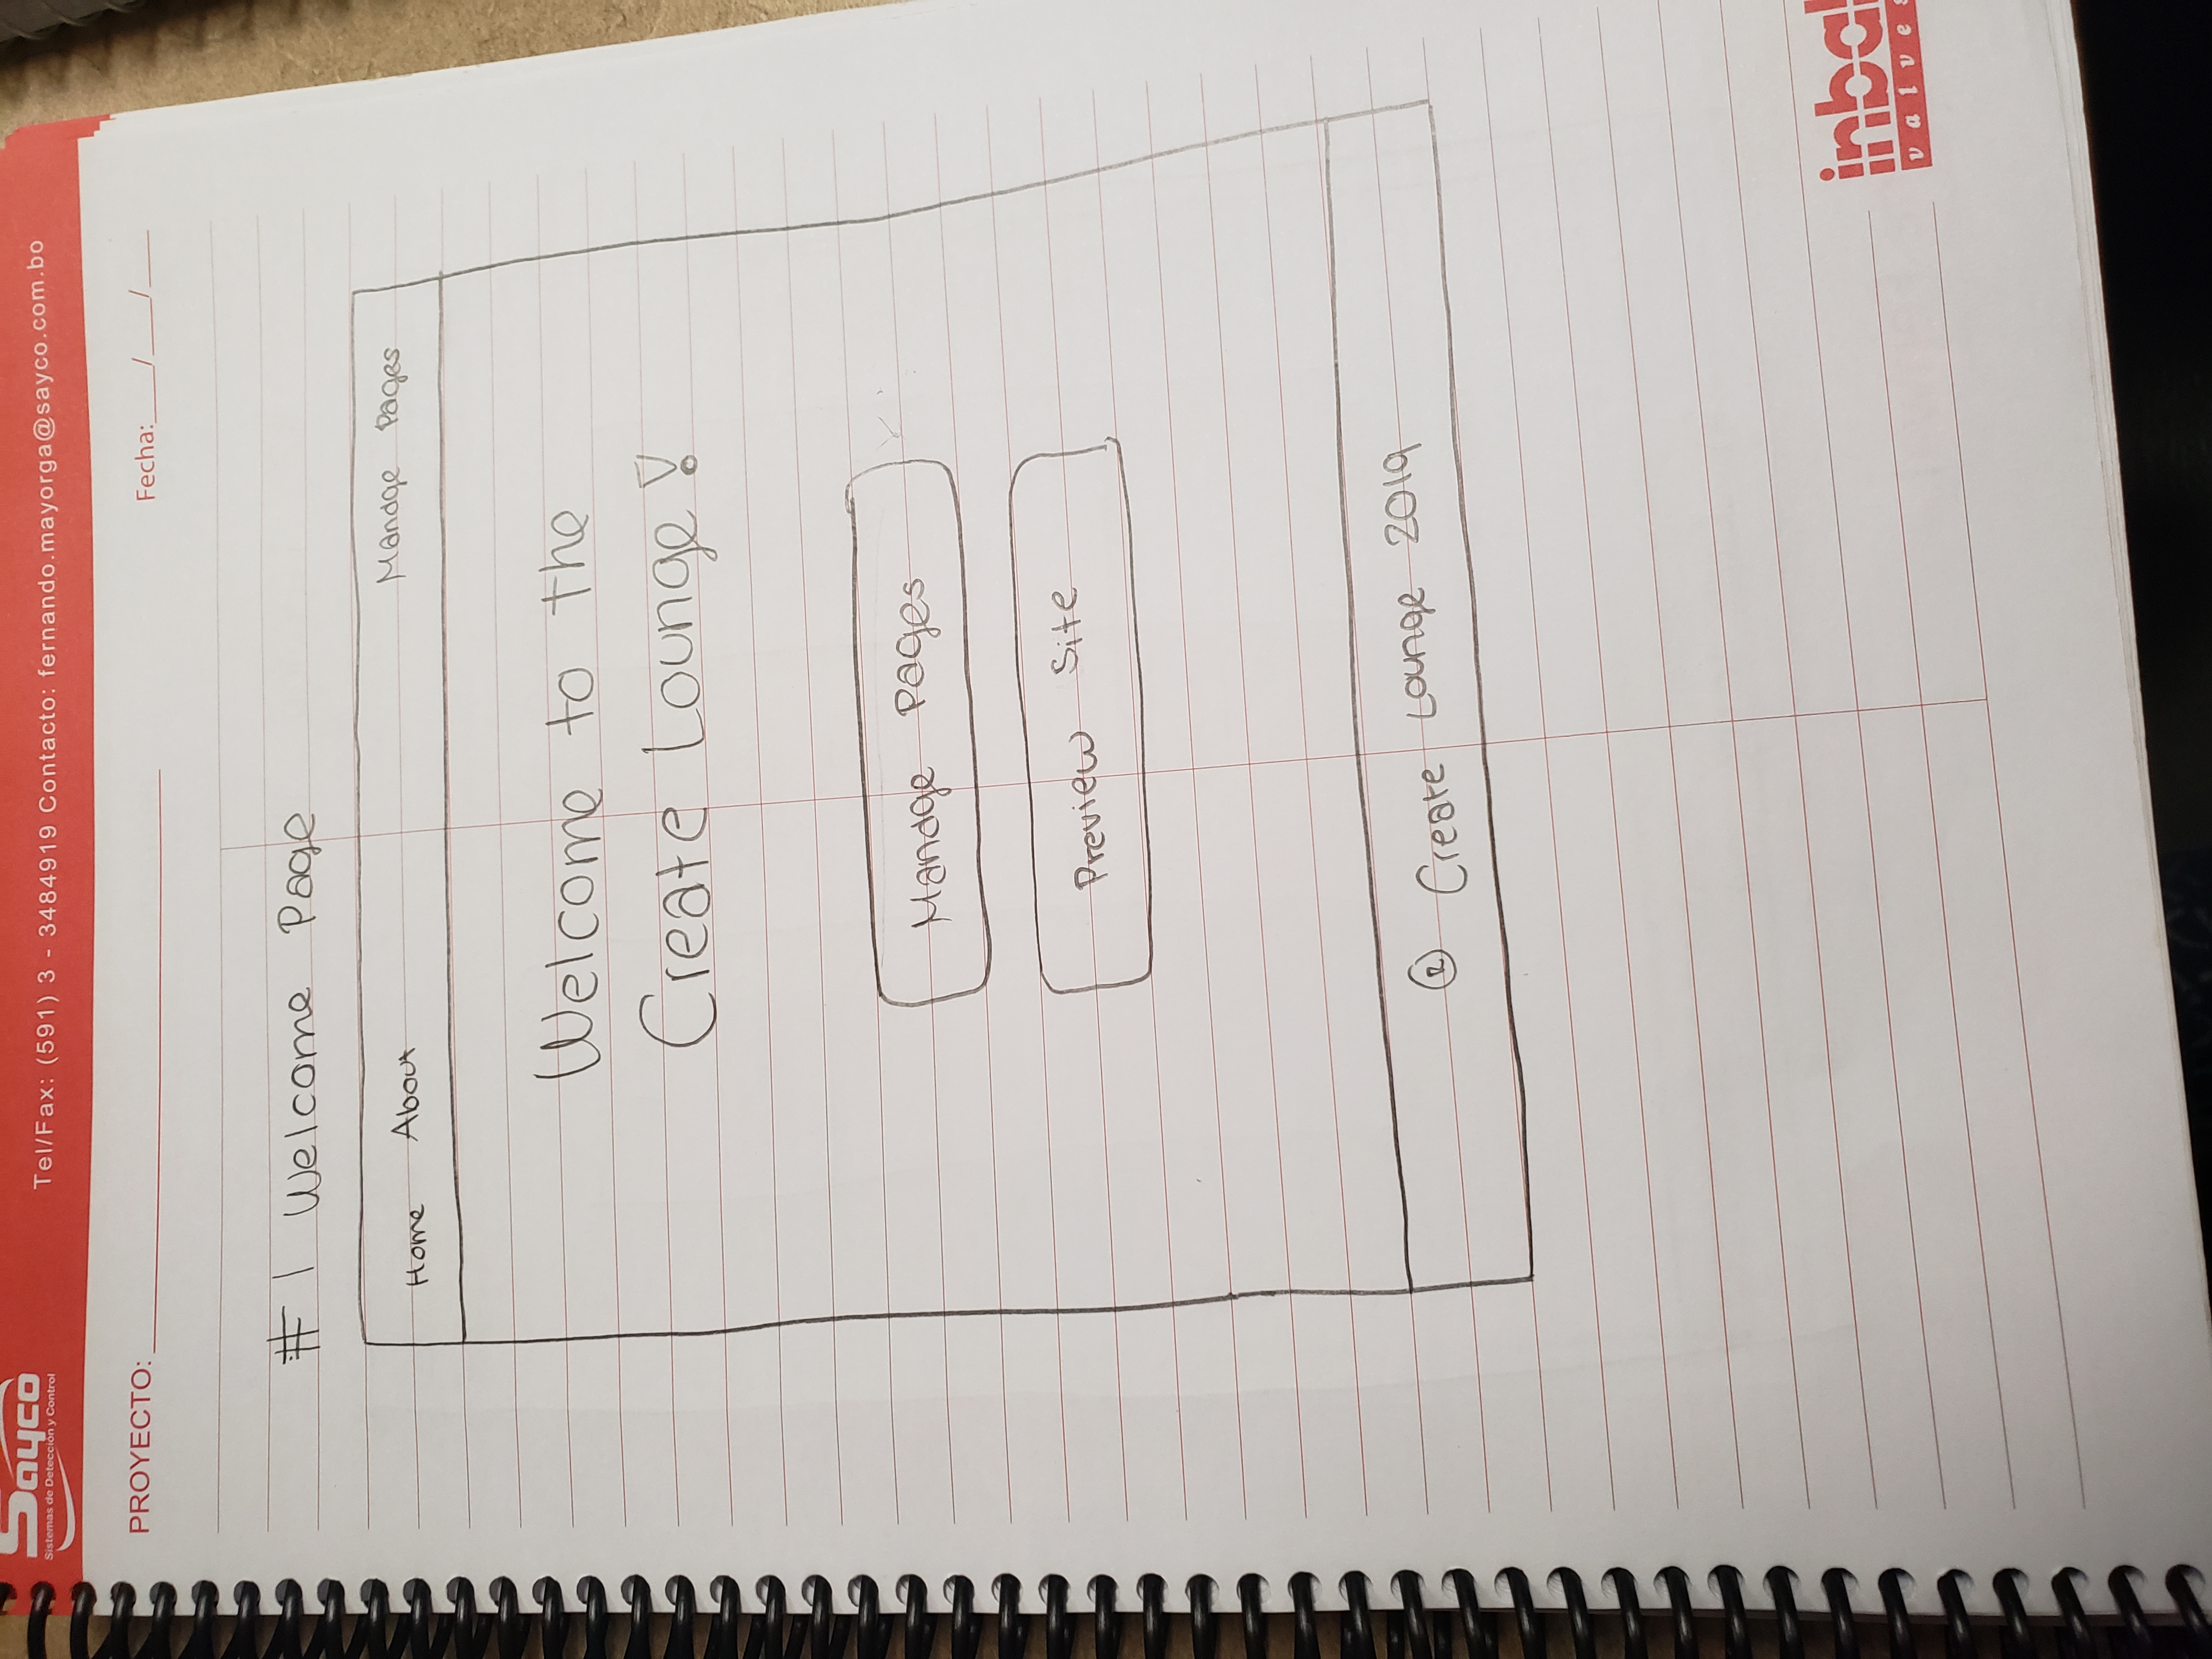 Sayco
Sistemas de Detección y Control
Tel/Fax: (591) 3 - 3484919 Contacto: fernando.mayorga@sayco.com.bo
PROYECTO:
Fecha: / /
# 1 Welcome Page
Home About Manage Pages
Welcome to the
Create Lounge!
Manage Pages
Preview Site
® Create Lounge 2019
inbal
valves